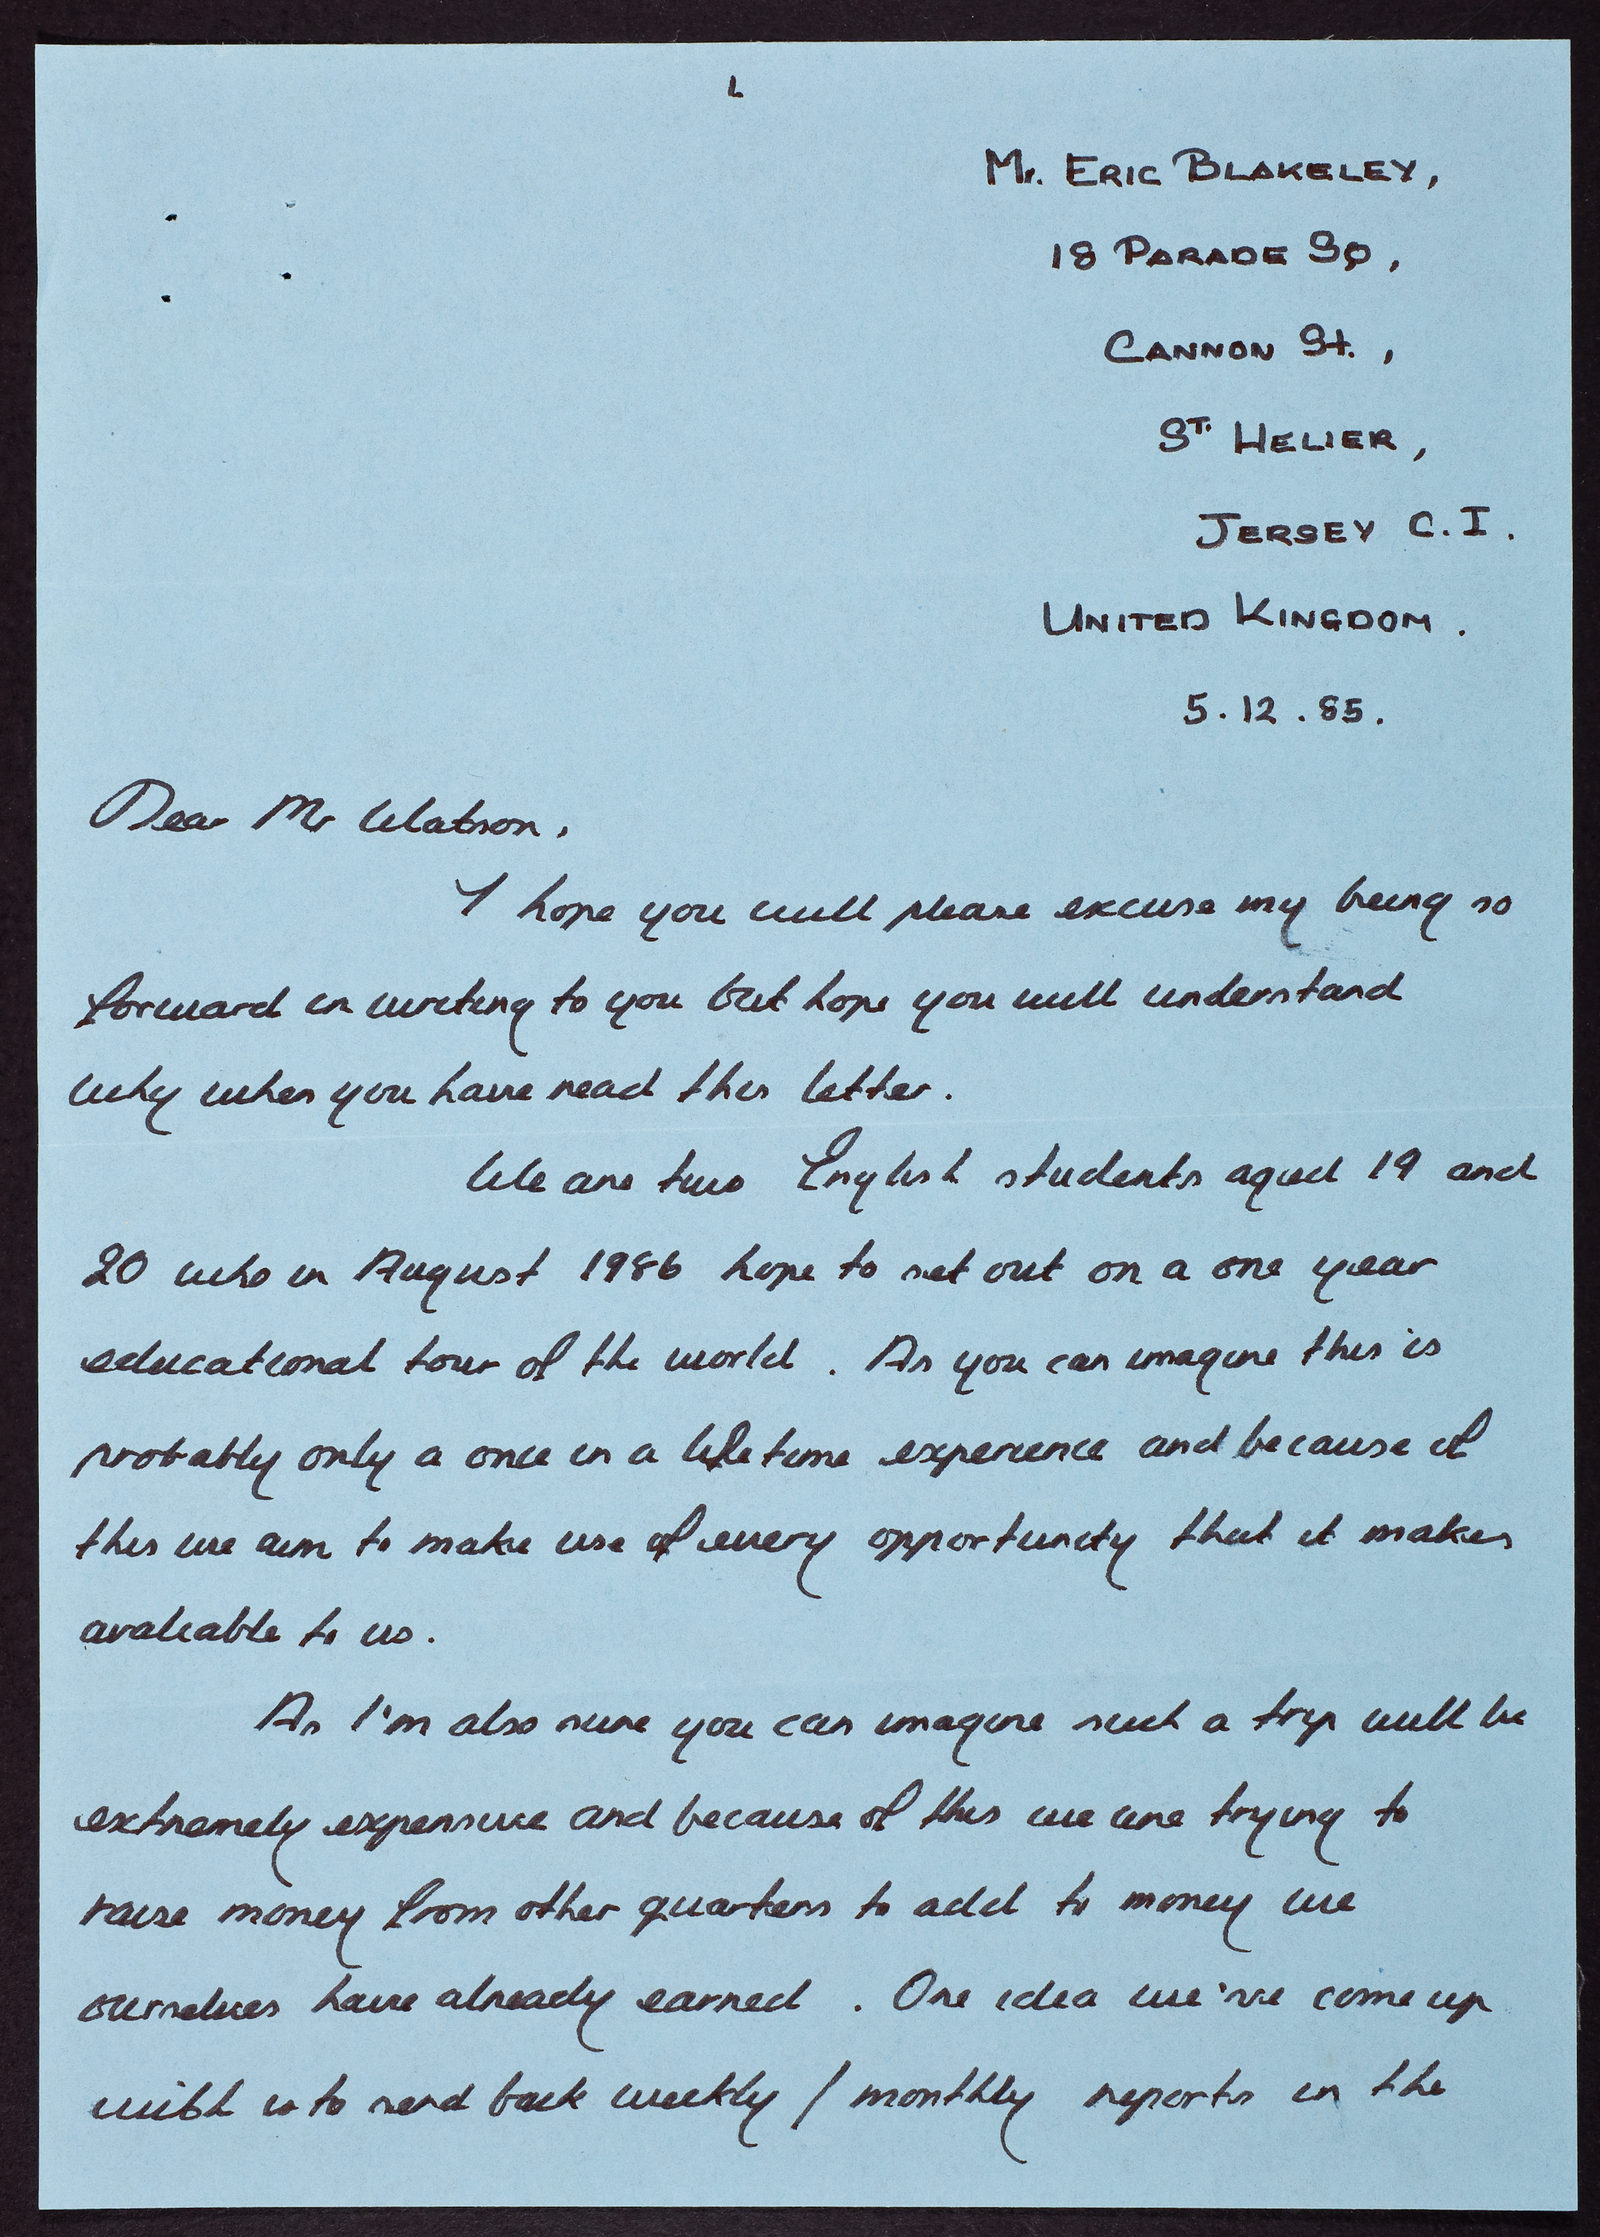 1
Mr. ERIC BLAKELEY,
18 PARADE SQ,
CANNON St.,
ST. HELIER,
JERSEY C.I.
UNITED KINGDOM.
5.12.85.
Dear Mr Watson,
I hope you will please excuse my being so
forward in writing to you but hope you will understand
why when you have read this letter.
We are two English students aged 19 and
20 who in August 1986 hope to set out on a one year
educational tour of the world. As you can imagine this is
probably only a once in a lifetime experience and because of
this we aim to make use of every opportunity that it makes
avaliable to us.
As I'm also sure you can imagine such a trip will be
extremely expensive and because of this we are trying to
raise money from other quarters to add to money we
ourselves have already earned. One idea we've come up
with is to send back weekly / monthly reports in the